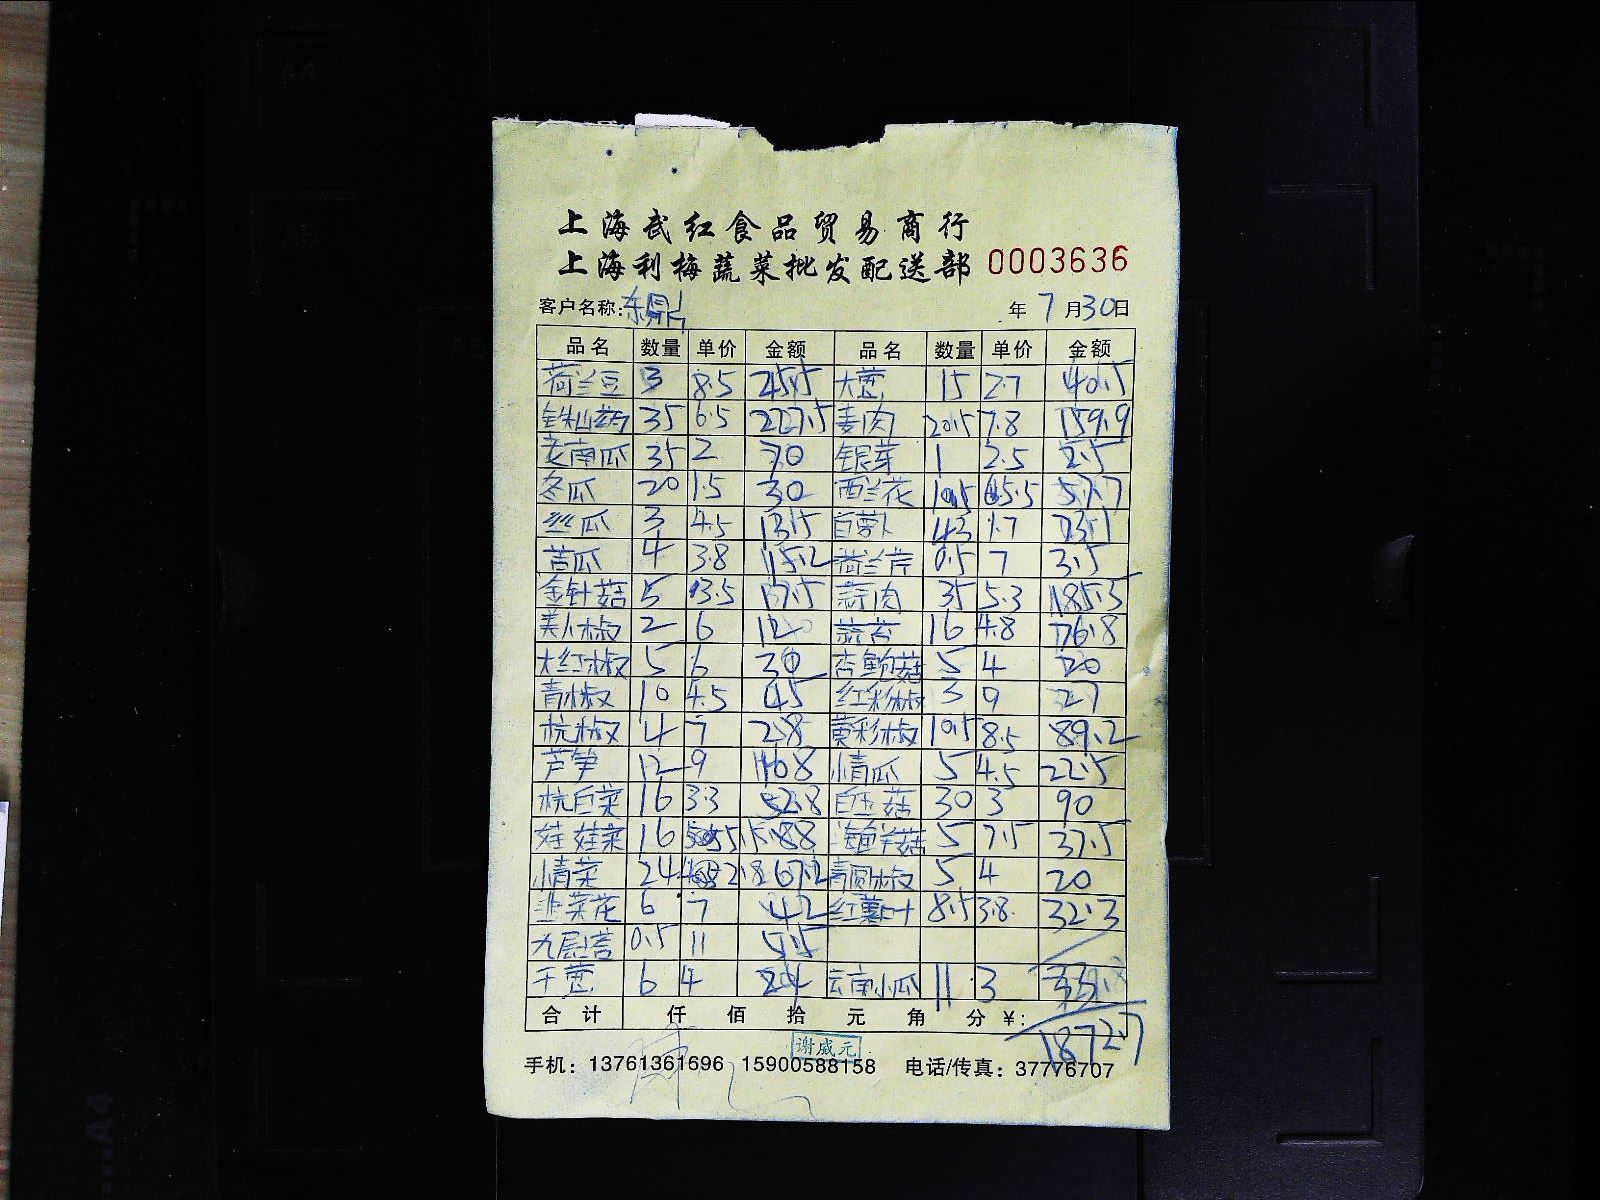 上海武红食品贸易商行
上海利梅蔬菜批发配送部 0003636
客户名称: 东鼎 年 7 月 30 日
品名 数量 单价 金额 品名 数量 单价 金额
荷兰豆 3 8.5 25.5 大葱 15 2.7 40.5
铁杆山药 35 6.5 227.5 姜肉 20.5 7.8 159.9
老南瓜 35 2 70 银芽 1 2.5 2.5
冬瓜 20 1.5 30 西兰花 10.5 5.5 57.7
丝瓜 3 4.5 13.5 白萝卜 43 1.7 73.1
苦瓜 4 3.8 15.2 荷兰芹 0.5 7 3.5
金针菇 5 3.5 17.5 蒜肉 35 5.3 185.5
美人椒 2 6 12 蒜苗 16 4.8 76.8
大红椒 5 6 30 杏鲍菇 5 4 20
青椒 10 4.5 45 红彩椒 3 9 27
杭椒 4 7 28 黄彩椒 10.5 8.5 89.2
芦笋 12 9 108 情瓜 5 4.5 22.5
杭白菜 16 3.3 52.8 白玉菇 30 3 90
娃娃菜 16 5.5 88 海鲜菇 5 7.5 37.5
情菜 24 2.8 67.2 青圆椒 5 4 20
韭菜花 6 7 42 红薯叶 8.5 3.8 32.3
九层塔 0.5 11 5.5
干葱 6 4 24 云南小瓜 11 3
合计 仟 佰 拾 元 角 分 ¥: 1872.7
谢威元
手机: 13761361696 15900588158 电话/传真: 37776707